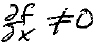 ∂f/∂x ≠ 0